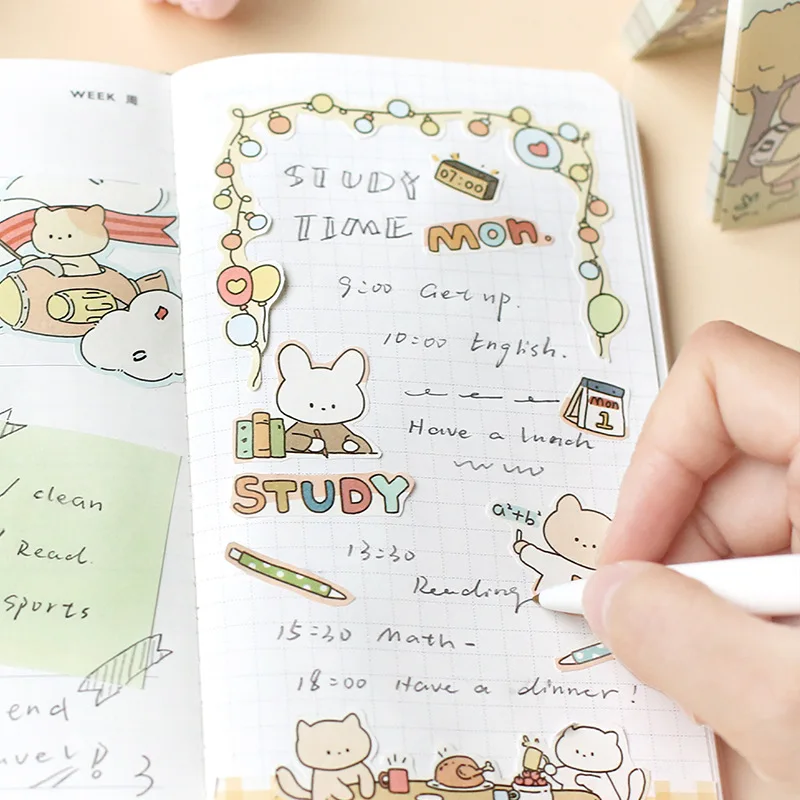 WEEK 周
clean
Read.
sports
end
STUDY
07:00
TIME
Mon.
9:00 Get up.
10:00 English.
Mon
1
Have a lunch
STUDY
a²+b²
13:30
Reading
15:30 Math-
18:00 Have a dinner!